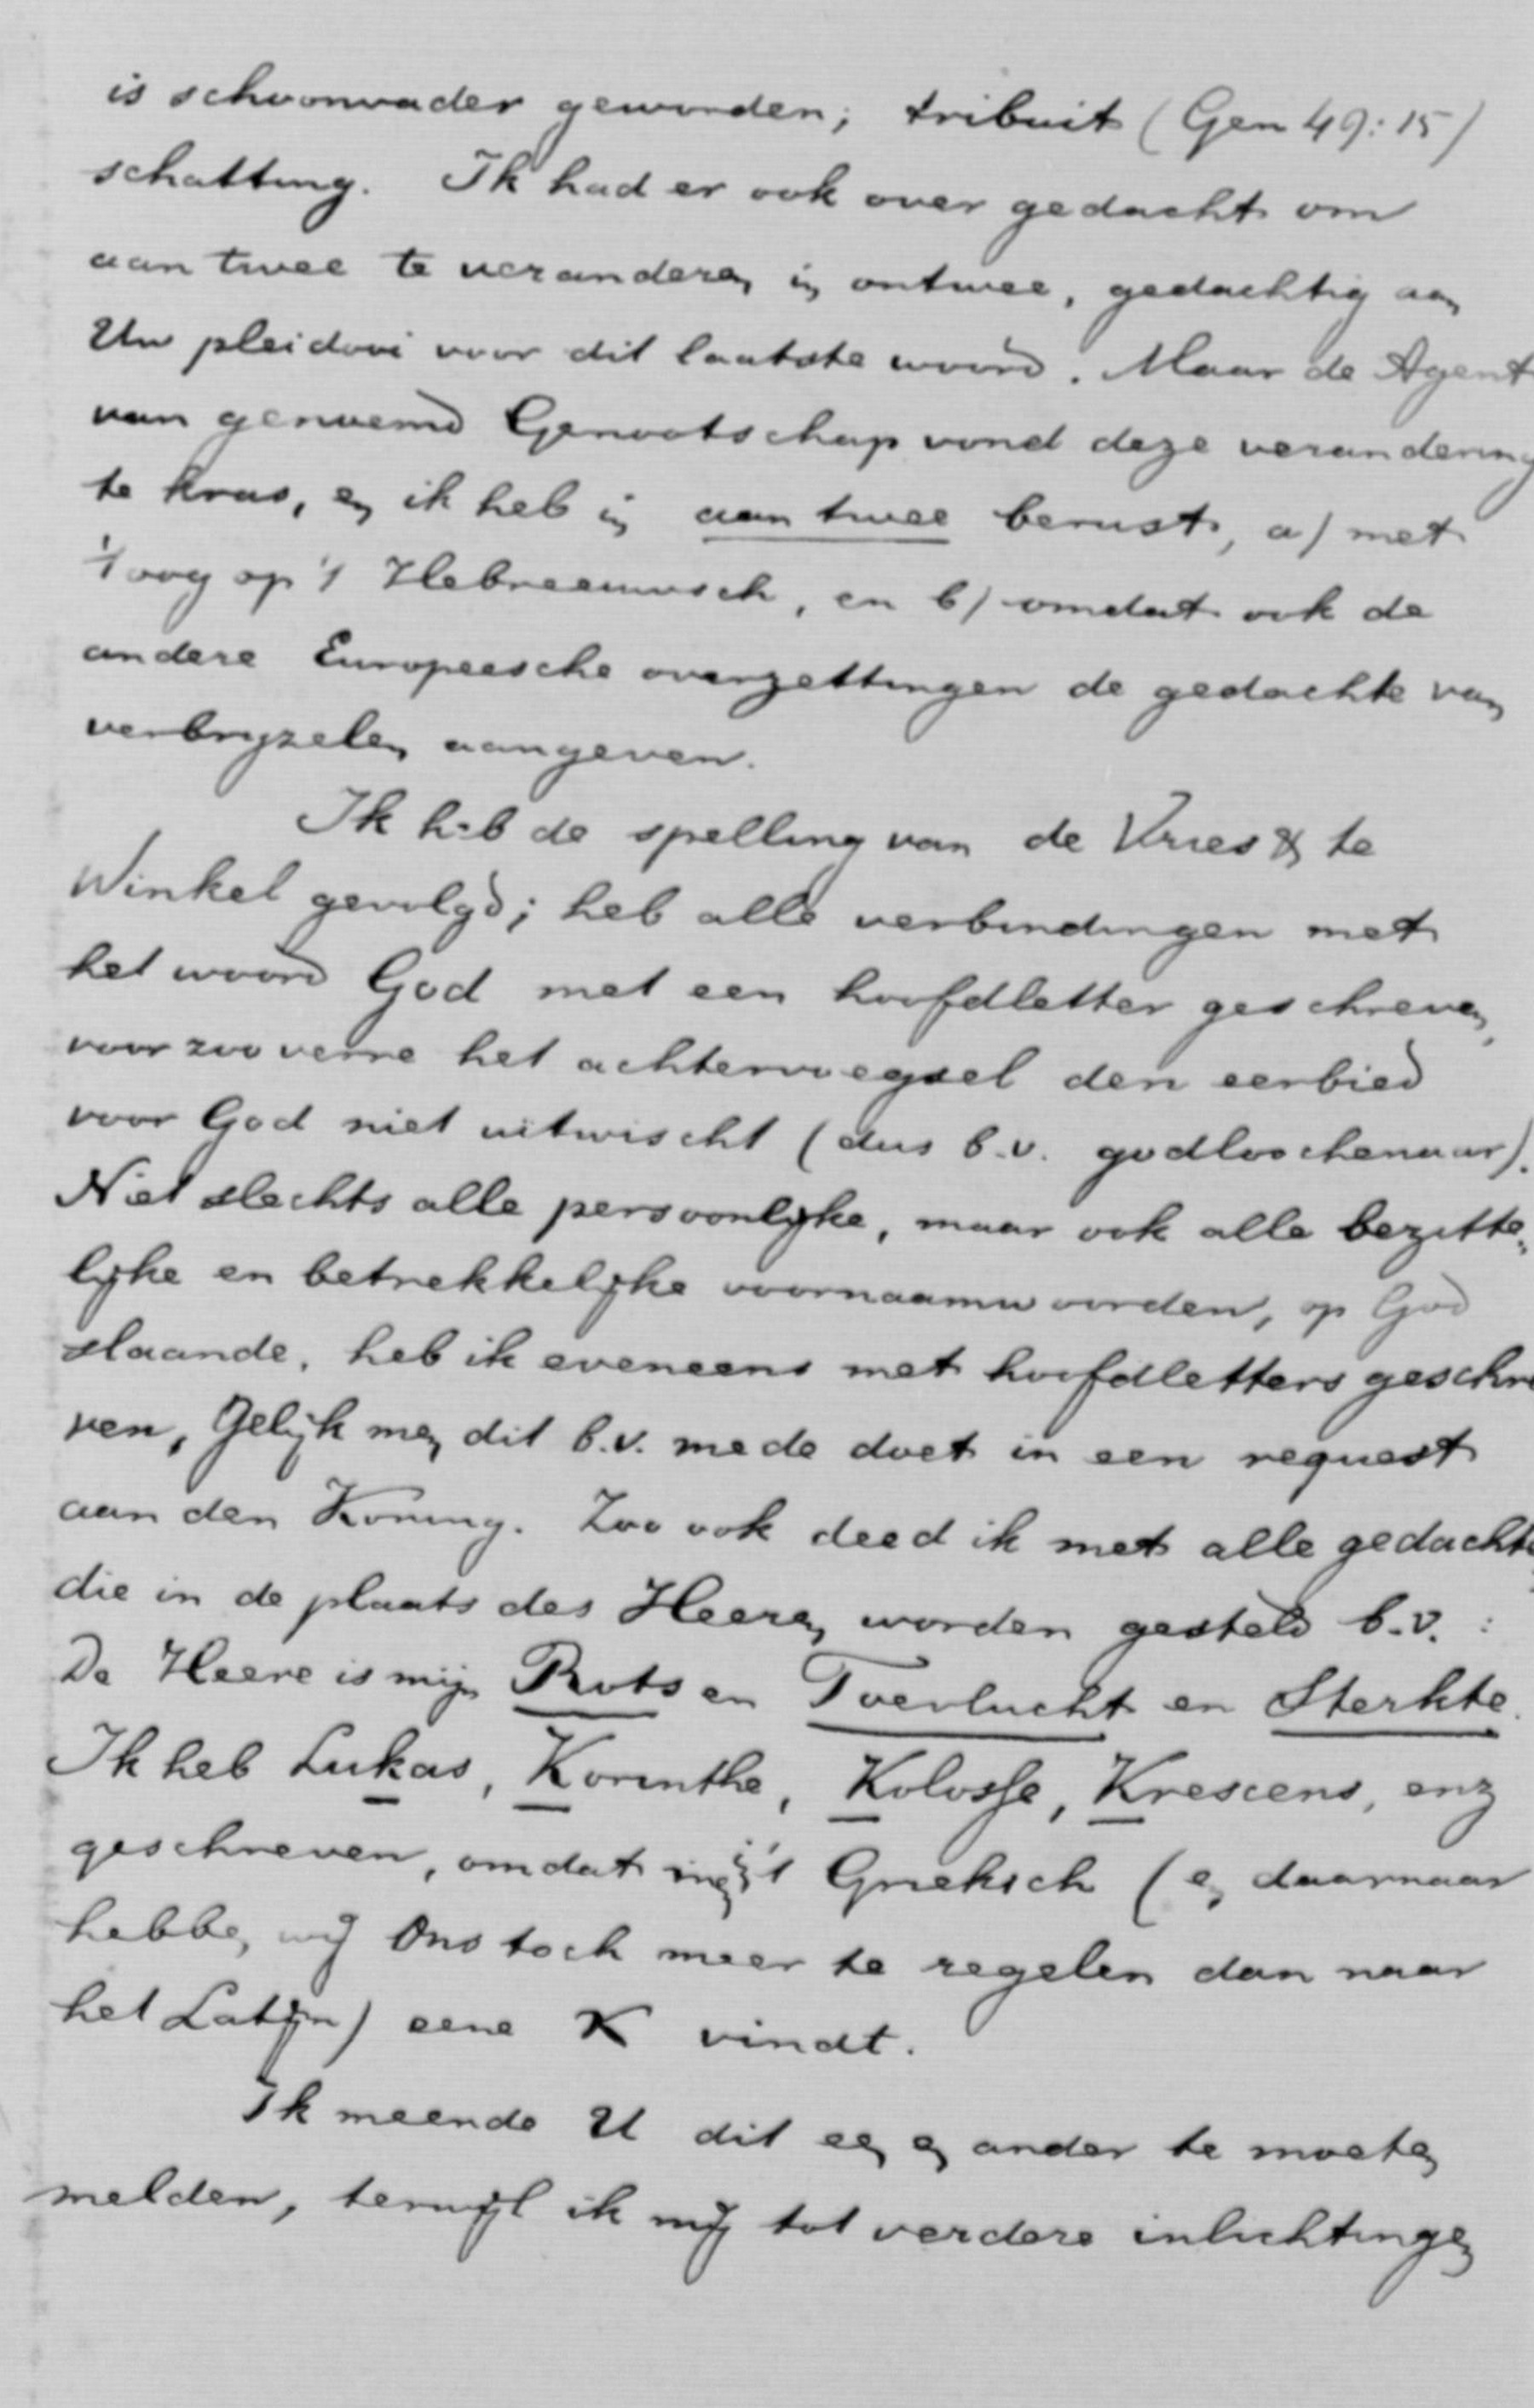 is schoonvader geworden; tribuit (Gen 49:15)
schatting. Ik had er ook over gedacht om
aan twee te veranderen in ontwee, gedachtig aan
Uw pleidooi voor dit laatste woord. Maar de Agent
van genoemd Genootschap vond deze verandering
te kras, en ik heb in aan twee berust, a) met
't oog op 't Hebreeuwsch, en b) omdat ook de
andere Europeesche overzettingen de gedachte van
verbryzelen aangeven.
Ik heb de spelling van de Vries & te
Winkel gevolgd; heb alle verbindingen met
het woord God met een hoofdletter geschreven,
voor zoo verre het achtervoegsel den eerbied
voor God niet uitwischt (dus b.v. godloochenaar).
Niet slechts alle persoonlijke, maar ook alle bezitte„
lijke en betrekkelijke voornaamwoorden, op God
slaande, heb ik eveneens met hoofdletters geschre
ven, Gelijk men dit b.v. mede doet in een request
aan den Koning. Zoo ook deed ik met alle gedachte
die in de plaats des Heeren worden gesteld b.v. :
De Heere is mijn Rots en Toevlucht en Sterkte.
Ik heb Lukas, Korinthe, Kolosse, Krescens, enz
geschreven, omdat men in 't Grieksch (en daarnaar
hebben wij Ons toch meer te regelen dan naar
het Latijn) eene K vindt.
Ik meende U dit een en ander te moeten
melden, terwijl ik mij tot verdere inlichtingen